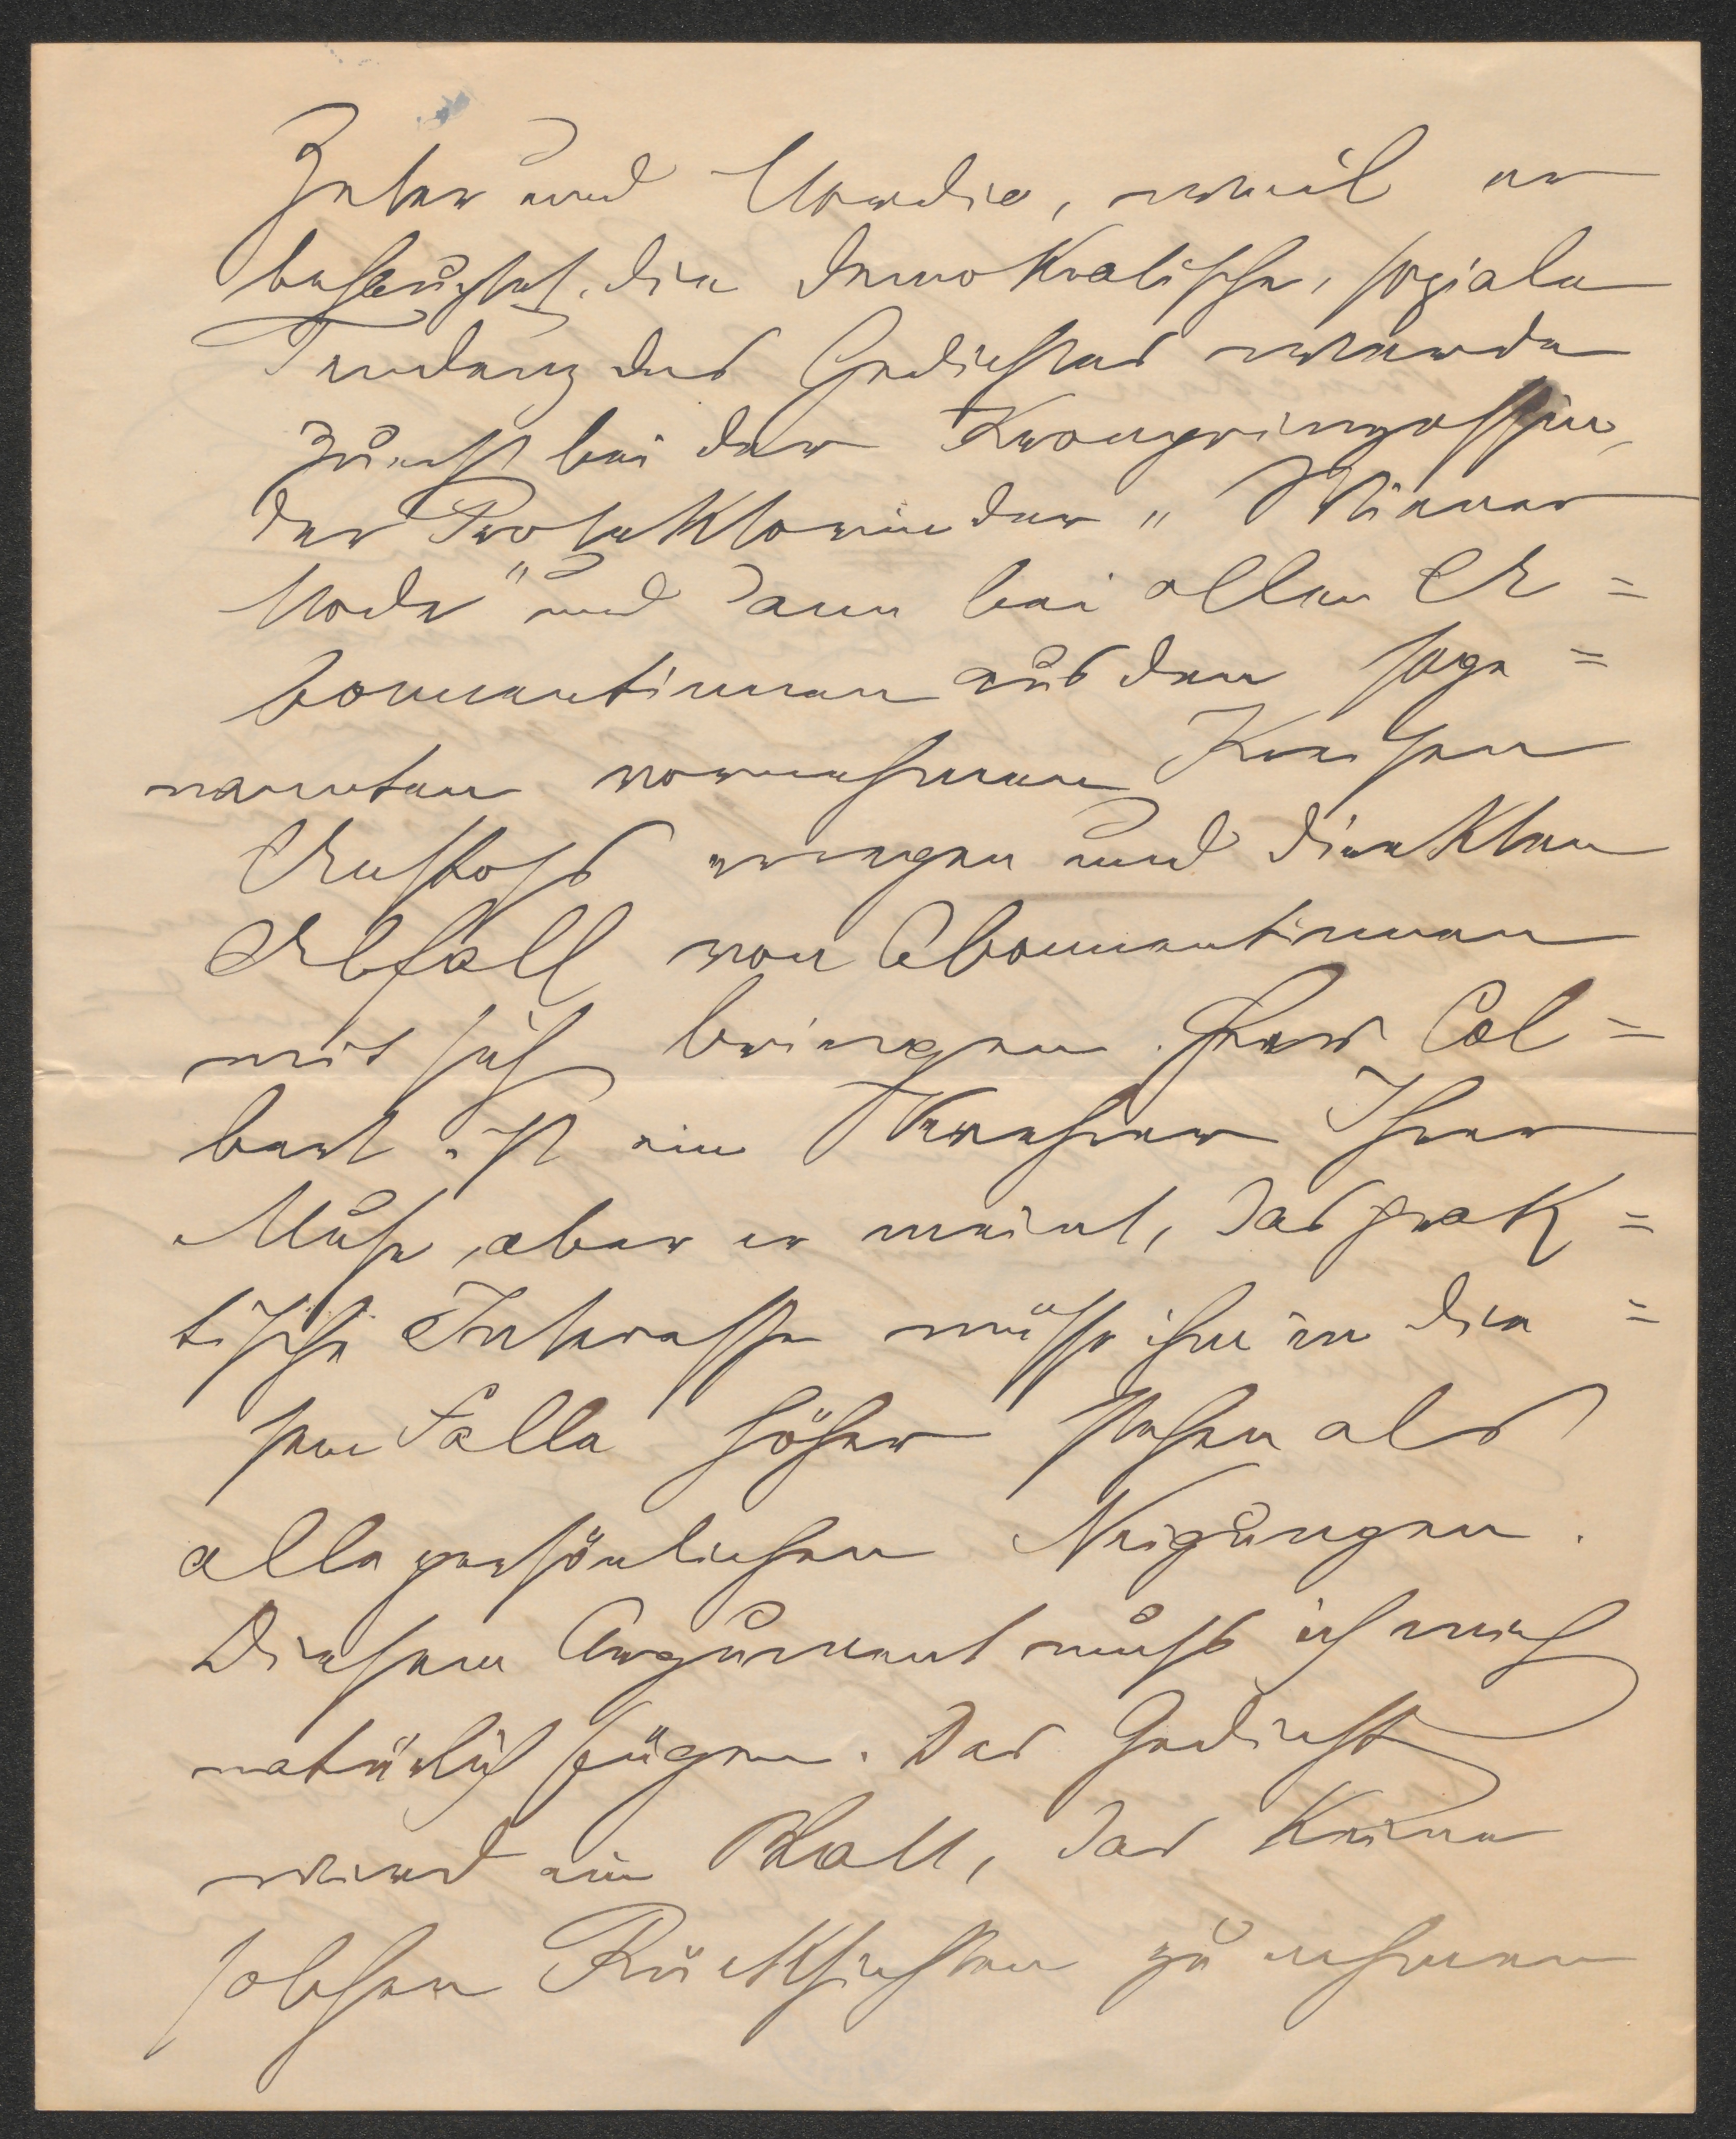 Zeter und Mordio, weil er
befürchtet, die demokratische, soziale
Tendenz des Gedichtes werde
zuerst bei der Kronprinzessin,
der Protektorin der „Wiener
Mode" und dann bei allen A=
bonnentinnen aus den soge=
nannten vornehmen Kreisen
Anstoß erregen und direkten
Abfall von Abonnentinnen
mit sich bringen. Herr Col=
bert ist ein Verehrer Ihrer
Muse, aber er meint, das prak=
tische Interesse müsse ihm in die=
sem Falle höher stehen als
alle persönlichen Neigungen.
Diesem Argument muß ich mich
natürlich fügen. Das Gedicht
wird ein Blatt, das keine
solchen Rücksichten zu nehmen